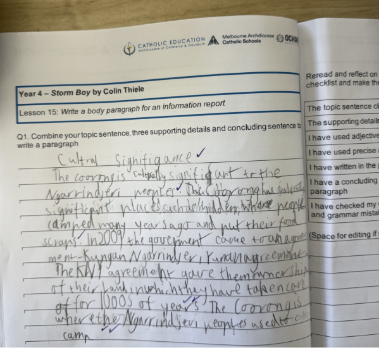 CATHOLIC EDUCATION
Melbourne Archdiocese
Catholic Schools
OCHRE
Year 4 – Storm Boy by Colin Thiele
Lesson 15: Write a body paragraph for an information report
Q1. Combine your topic sentence, three supporting details and concluding sentence to
write a paragraph
Cultral Signifigance
The coorong is culturally significant to the
Ngarrindjeri peoples. The Coorong has
significant places such as midden, where people
camped many years ago and put their food
scraps. In 2009 the goverment came to an agree
ment - Kungun Ngarrindjeri Yunnan agreement
The KNY agreement gave them ownership
of their land in which they have taken care
of for 1000s of years. The Coorong is
where the Ngarrindjeri peoples used to
camp
Reread and reflect on
checklist and make the
The topic sentence cl
The supporting detail
I have used adjective
I have used precise
I have written in the
I have a concluding
paragraph
I have checked my
and grammar mista
(Space for editing if